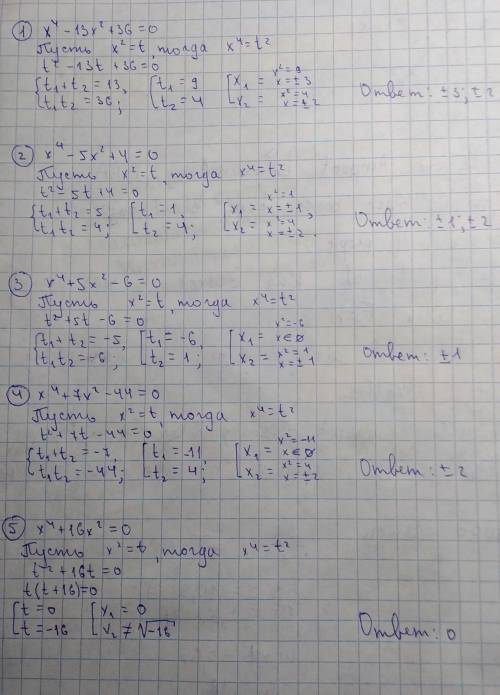 1) x⁴ - 13x² + 36 = 0
Пусть x² = t, тогда x⁴ = t²
t² - 13t + 36 = 0
{ t₁ + t₂ = 13, [ t₁ = 9 [ x₁ = x² = 9 x = ±3
{ t₁t₂ = 36; [ t₂ = 4 [ x₂ = x² = 4 x = ±2 Ответ: ±3; ±2
2) x⁴ - 5x² + 4 = 0
Пусть x² = t, тогда x⁴ = t²
t² - 5t + 4 = 0
{ t₁ + t₂ = 5, [ t₁ = 1, [ x₁ = x² = 1 x = ±1,
{ t₁t₂ = 4; [ t₂ = 4; [ x₂ = x² = 4 x = ±2. Ответ: ±1; ±2
3) x⁴ + 5x² - 6 = 0
Пусть x² = t, тогда x⁴ = t²
t² + 5t - 6 = 0
{ t₁ + t₂ = -5, [ t₁ = -6, [ x₁ = x² = -6 x ∈ ∅
{ t₁t₂ = -6, [ t₂ = 1; [ x₂ = x² = 1 x = ±1 Ответ: ±1
4) x⁴ + 7x² - 44 = 0
Пусть x² = t, тогда x⁴ = t²
t² + 7t - 44 = 0
{ t₁ + t₂ = -7, [ t₁ = -11 [ x₁ = x² = -11 x ∈ ∅
{ t₁t₂ = -44; [ t₂ = 4; [ x₂ = x² = 4 x = ±2 Ответ: ±2
5) x⁴ + 16x² = 0
Пусть x² = t, тогда x⁴ = t²
t² + 16t = 0
t(t + 16) = 0
[ t = 0 [ x₁ = 0
[ t = -16 [ x₂ ≠ √-16 Ответ: 0